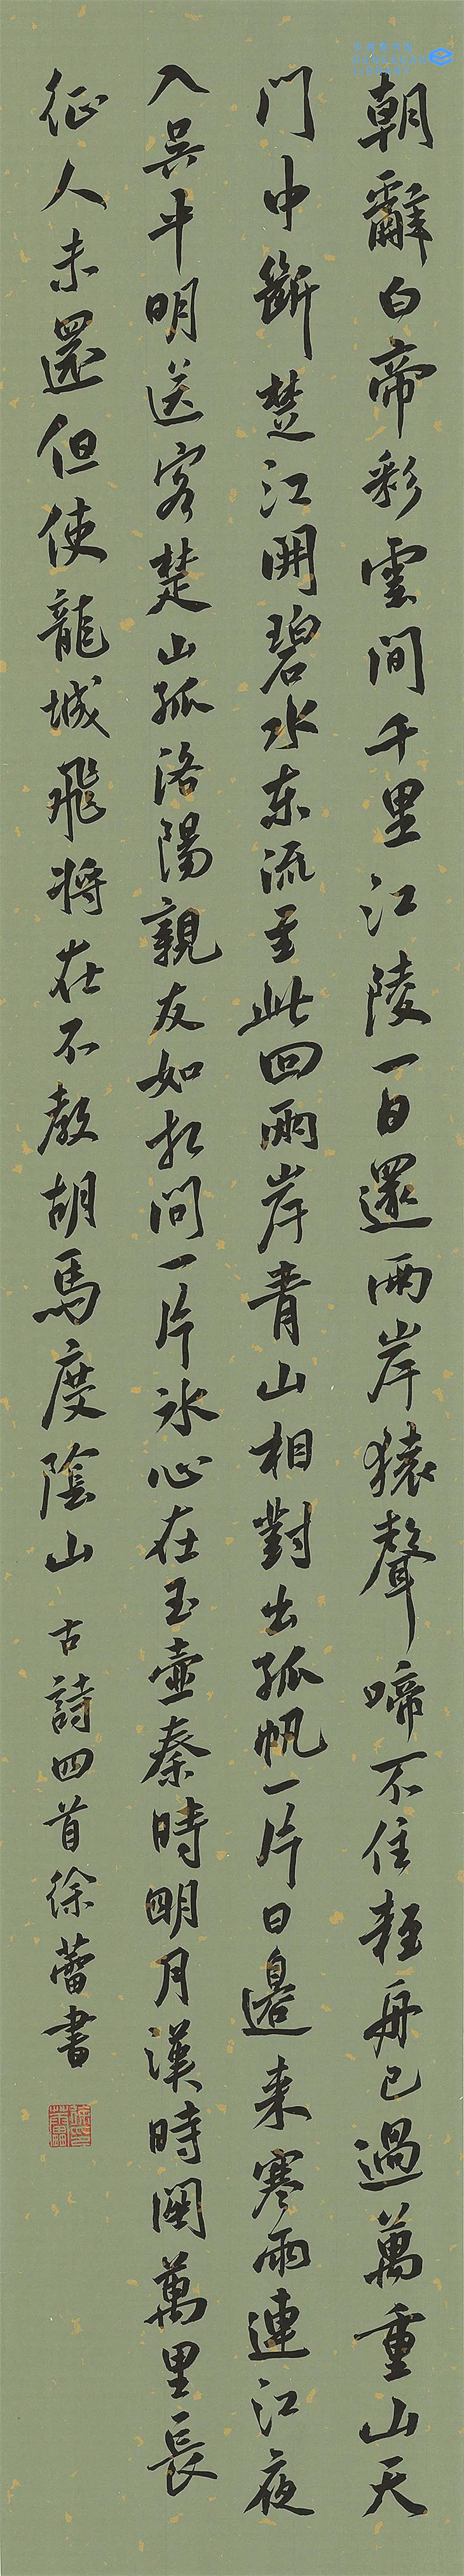 朝辭白帝彩雲間千里江陵一日還兩岸猿聲啼不住輕舟已過萬重山天
門中斷楚江開碧水東流至此回兩岸青山相對出孤帆一片日邊来寒雨連江夜
入吳平明送客楚山孤洛陽親友如相問一片冰心在玉壺秦時明月漢時關萬里長
征人未還但使龍城飛将在不教胡馬度陰山 古詩四首徐蕾書